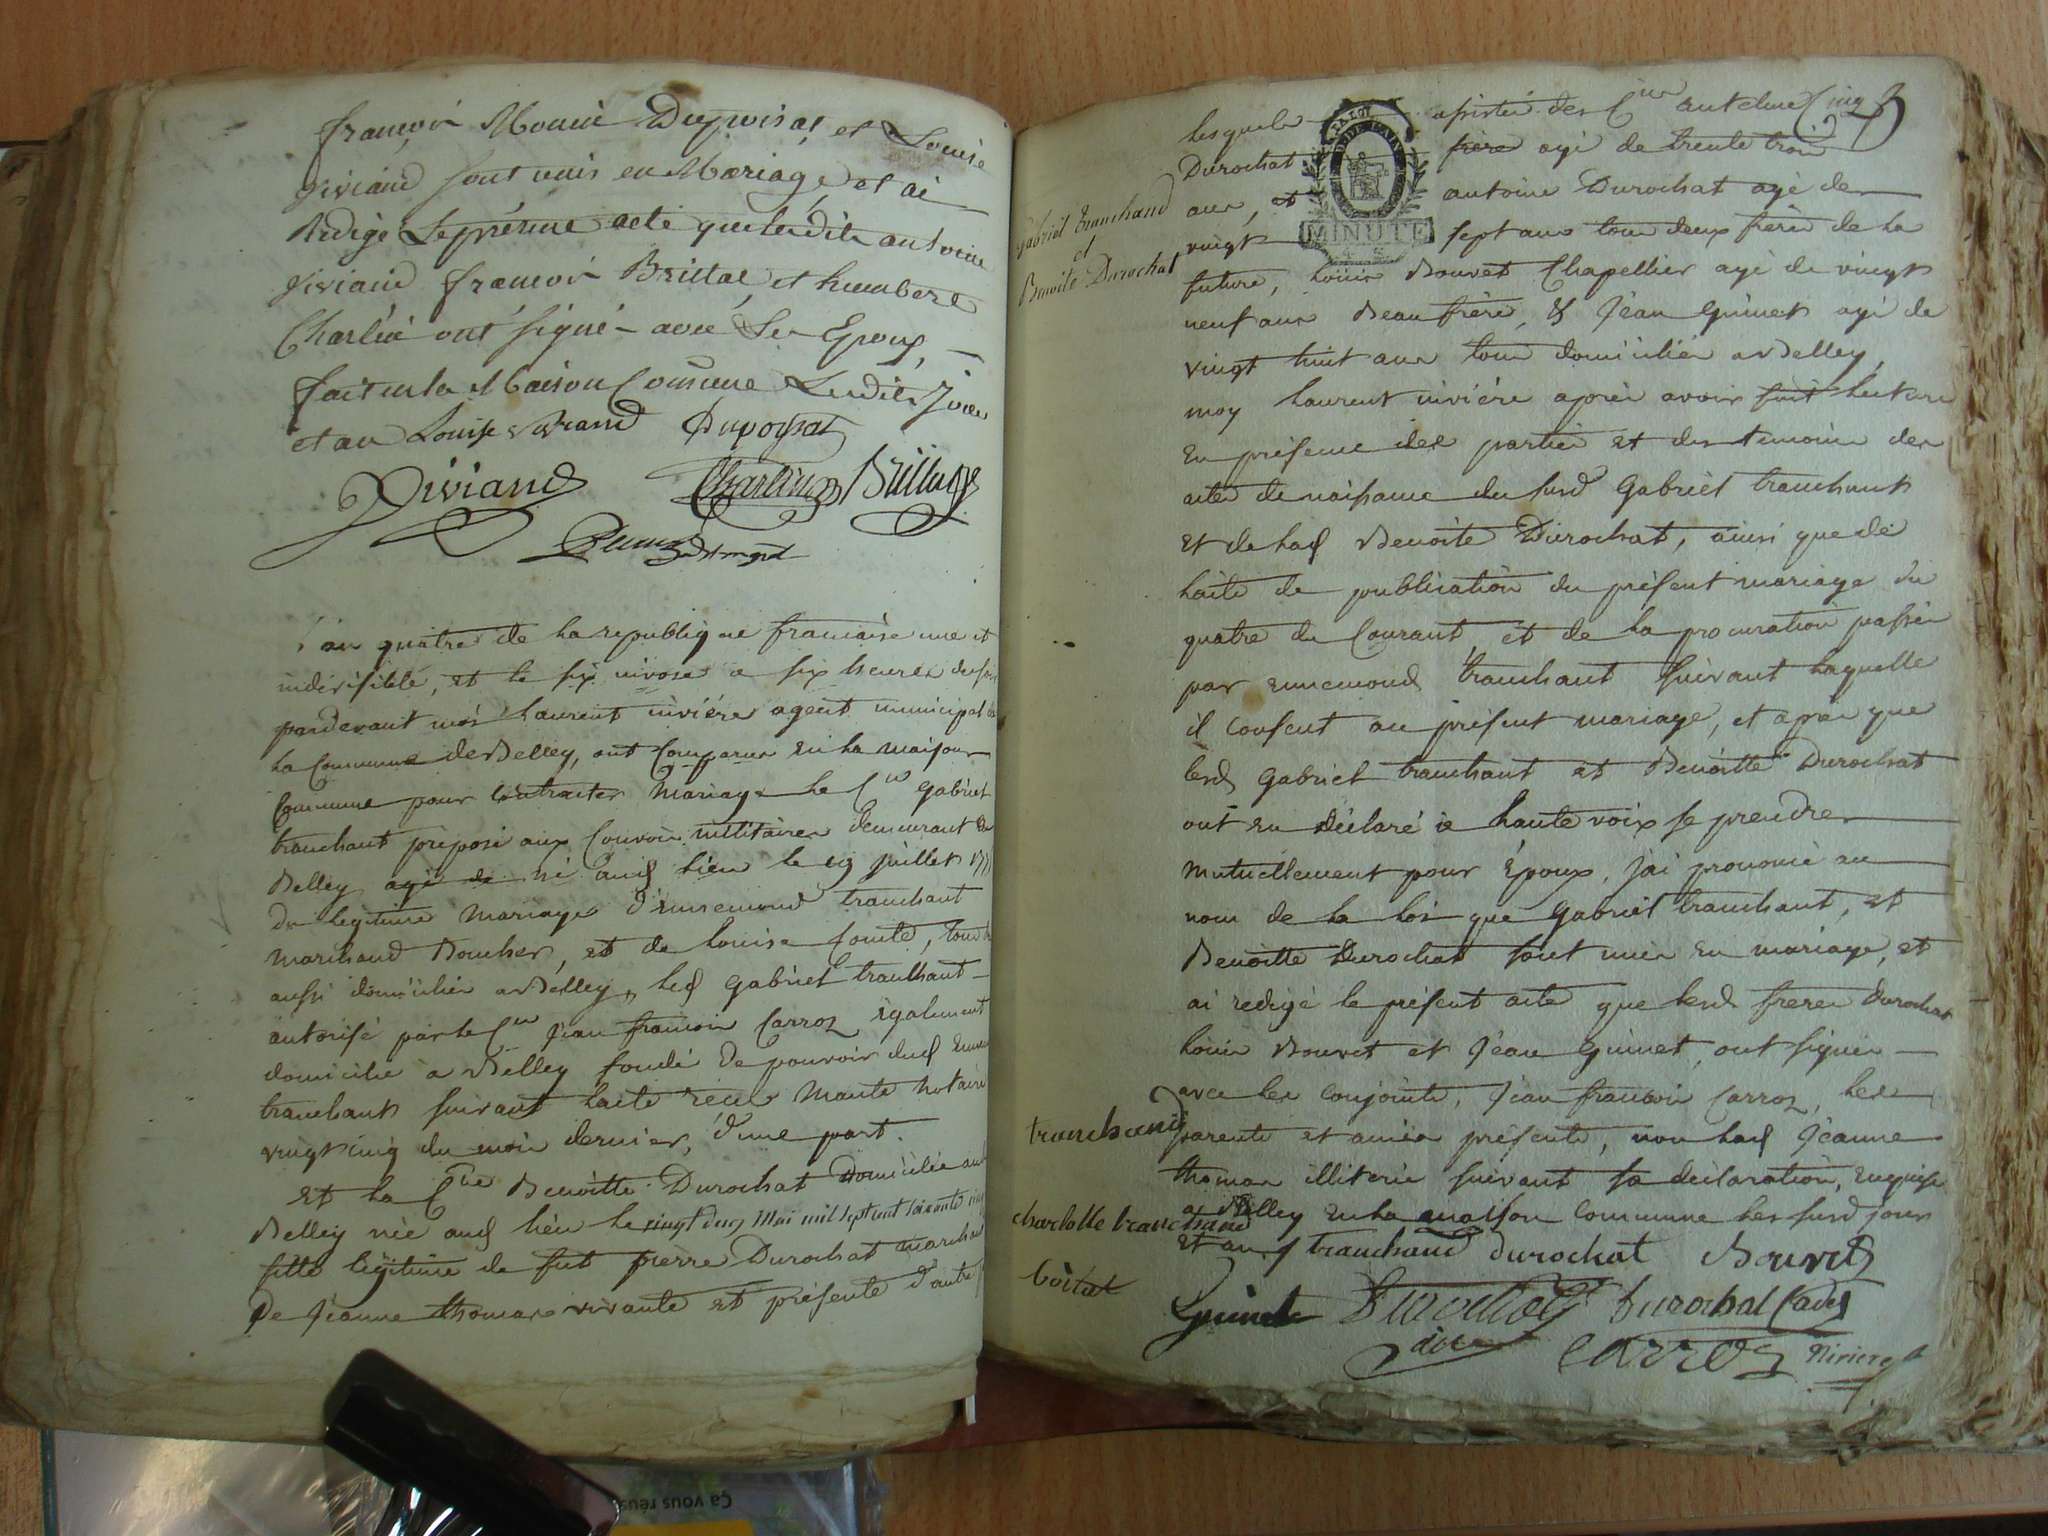 françois Marie Dupoisat et Louise
Viviand sont unis en Mariage, et ai
Rédigé Le présent acte que lesdits antoine
Viviand françois Brillat, et humbert
Charlin ont signé avec Les Epoux,
fait en la Maison Commune Lesdits Jour
et an Louise Viviand Dupoisat
Viviand Charlin Brillat
L'an quatre de la republique francaise une et
indivisible, et le six nivose a six heures du soir
pardevant moi Laurent nivière agent municipal de
la Commune de Belley, ont Comparus en la maison
Commune pour Contracter Mariage le Cen Gabriel
tranchant préposé aux Convois militaires demeurant a
Belley agé de né aud lieu le 19 juillet
du légitime Mariage d'ennemond tranchant
Marchand Boucher, et de Louise
aussi domiciliés a Belley, led Gabriel tranchant
autorisé par le Cen Jean françois Carroz également
domicilié a Belley fondé de pouvoir dud
tranchant suivant l'acte recu Mante Notaire
vingt cinq du mois dernier, d'une part.
et la Cne Benoitte Durochat domiciliée aud
Belley née aud lieu le vingt deux Mai mil sept cent soixante
fille légitime de fut pierre Durochat marchand
De Jeanne thomas vivante et présente d'autre
Gabriel tranchand
et
Benoite Durochat
lesquels assisté des Cens antelme Cinq
Durochat frère agé de trente trois
ans, et antoine Durochat agé de
vingt sept ans tous deux frères de la
MINUTE
future, Louis Bouvet Chapellier agé de vingt
neuf ans Beau frère, & Jean Guinet agé de
vingt huit ans tous domiciliés a Belley,
moy Laurent nivière après avoir fait lecture
en présence des parties et des temoins des
actes de naissance du susd Gabriel tranchant
et de lad Benoite Durochat, ainsi que de
l'acte de publication du présent mariage du
quatre du Courant, et de la procuration passée
par ennemond tranchant suivant laquelle
il consent au présent mariage, et apres que
lesd Gabriel tranchant et Benoitte Durochat
ont eu déclaré a haute voix se prendre
mutuellement pour Époux, j'ai prononcé au
nom de la loi que Gabriel tranchant, et
Benoitte Durochat sont unis en mariage, et
ai redigé le présent acte que lesd freres Durochat
Louis Bouvet et Jean Guinet, ont signés
avec les conjoints, Jean francois Carroz, les
parents et amies présents, non lad Jeanne
thomas illiterée suivant sa déclaration, enquise
a Belley en la maison Commune les susd jours
et an tranchand durochat Bouvet
tranchand
charlotte tranchand
Guinet Durochat Durochat Cadet
ainé Carroz Niviere
Ça vous